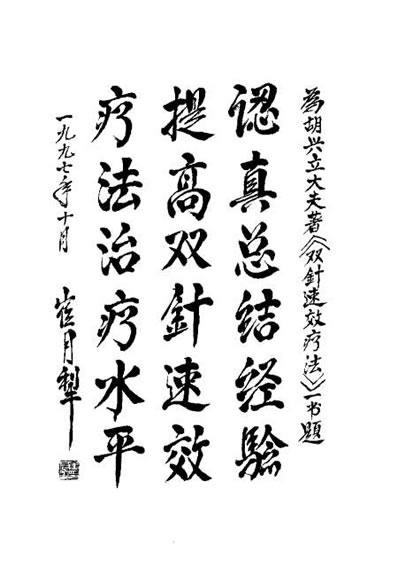 為胡兴立大夫著《双針速效疗法》一书题
認真总结经驗
提高双針速效
疗法治疗水平
一九九七年十月
崔月犁